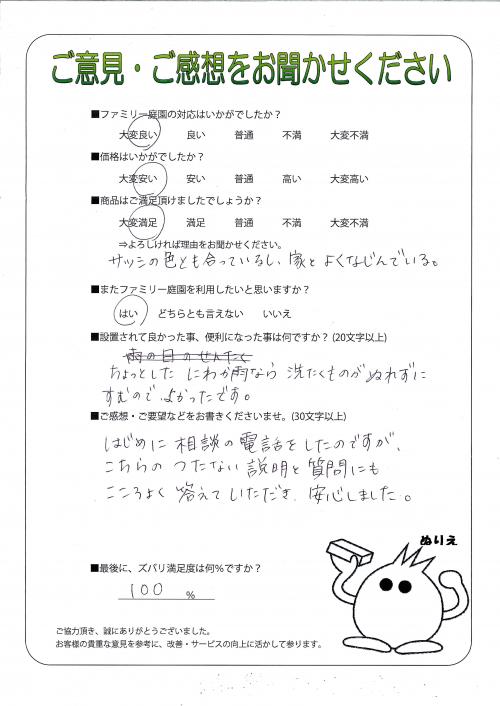 ご意見・ご感想をお聞かせください
■ファミリー庭園の対応はいかがでしたか？
大変良い 良い 普通 不満 大変不満
■価格はいかがでしたか？
大変安い 安い 普通 高い 大変高い
■商品はご満足頂けましたでしょうか？
大変満足 満足 普通 不満 大変不満
⇒よろしければ理由をお聞かせください。
サッシの色とも合っているし、家とよくなじんでいる。
■またファミリー庭園を利用したいと思いますか？
はい どちらとも言えない いいえ
■設置されて良かった事、便利になった事は何ですか？(20文字以上)
雨の日のせんたく
ちょっとしたにわか雨なら洗たくものがぬれずに
すむので、よかったです。
■ご感想・ご要望などをお書きくださいませ。(30文字以上)
はじめに相談の電話をしたのですが、
こちらのつたない説明と質問にも
こころよく答えていただき、安心しました。
ぬりえ
■最後に、ズバリ満足度は何％ですか？
100 ％
ご協力頂き、誠にありがとうございました。
お客様の貴重な意見を参考に、改善・サービスの向上に活かして参ります。